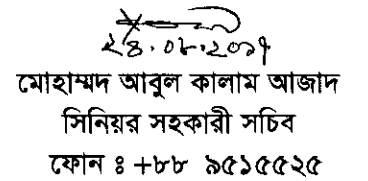 ২৪.০৮.২০১৭
মোহাম্মদ আবুল কালাম আজাদ
সিনিয়র সহকারী সচিব
ফোন ঃ +৮৮ ৯৫১৫৫২৫